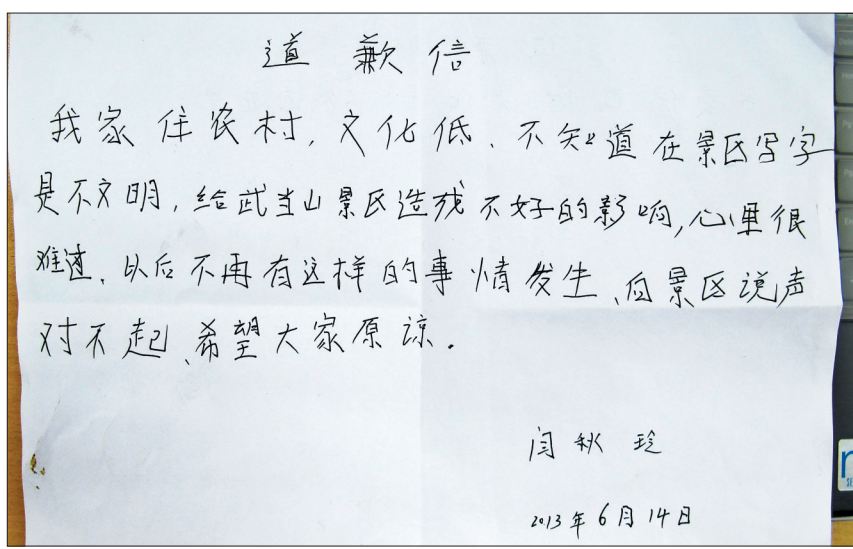 道歉信
我家住农村,文化低、不知道在景区写字
是不文明,给武当山景区造成不好的影响,心里很
难过、以后不再有这样的事情发生、向景区说声
对不起、希望大家原谅.
闫秋玲
2013年6月14日